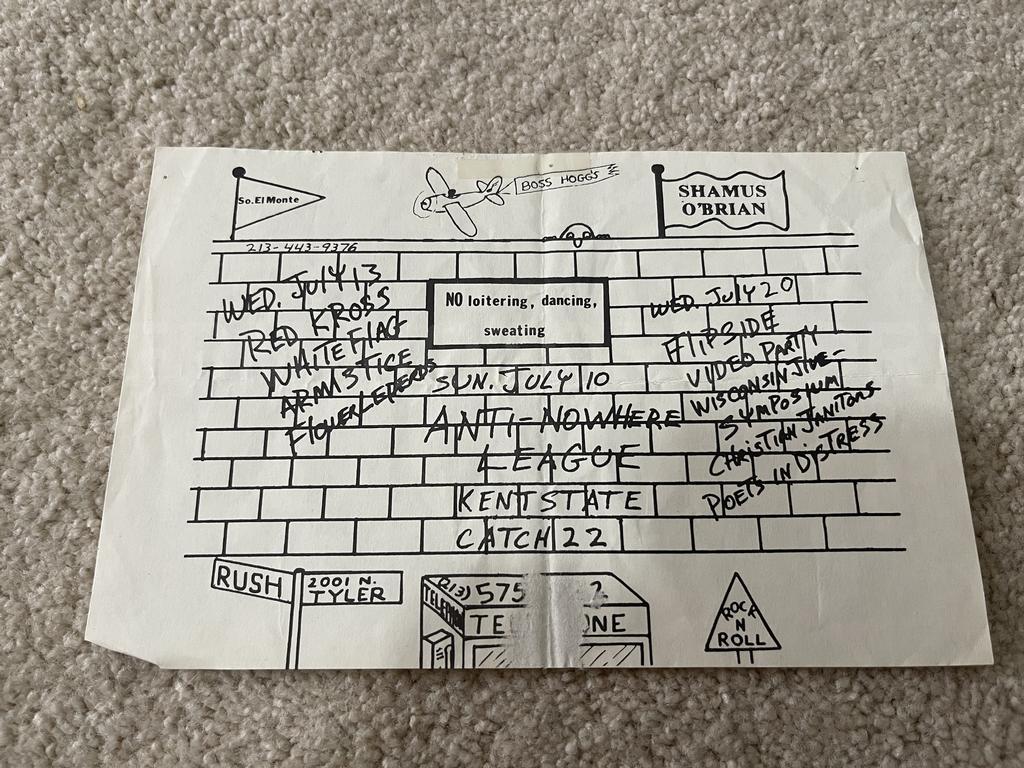 So. El Monte
BOSS HOGG'S
SHAMUS
O'BRIAN
213-443-9376
WED. JULY 13
RED KROSS
WHITE FLAG
ARMISTICE
FLOWER LEPERDS
NO loitering, dancing,
sweating
SUN. JULY 10
ANTI-NOWHERE
LEAGUE
KENT STATE
CATCH 22
WED. JULY 20
FLIPSIDE
VIDEO PARTY
WISCONSIN JIVE-
SYMPOSIUM
CHRISTIAN JANITORS
POETS IN DISTRESS
RUSH
2001 N.
TYLER
(213) 575
2
TELEPHONE
TE ONE
ROCK
N
ROLL